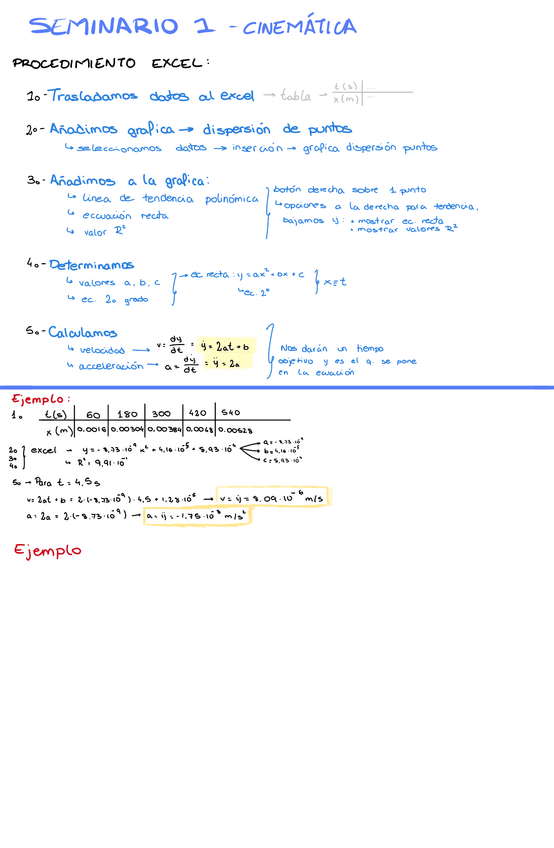 SEMINARIO 1 - CINEMÁTICA
PROCEDIMIENTO EXCEL:
1o- Trasladamos datos al excel → tabla → t(s) | ...
x(m) | ...
2o- Añadimos grafica → dispersión de puntos
↳ seleccionamos datos → inserción → grafica dispersión puntos
3o- Añadimos a la grafica:
↳ linea de tendencia polinómica
↳ ecuación recta
↳ valor R²
botón derecha sobre 1 punto
↳ opciones a la derecha para tendencia,
bajamos y: • mostrar ec. recta
• mostrar valores R²
4o- Determinamos
↳ valores a, b, c
↳ ec. 2o grado
→ ec recta: y = ax² + bx + c
↳ ec. 2º
x = t
5o- Calculamos
↳ velocidad → v = dy/dt = ẏ = 2at + b
↳ acceleración → a = dẏ/dt = ÿ = 2a
Nos darán un tiempo
objetivo y es el q. se pone
en la ecuación
Ejemplo:
1o t(s) | 60 | 180 | 300 | 420 | 540
x(m) | 0.0016 | 0.00304 | 0.00384 | 0.0048 | 0.00528
2o
3o
4o
excel → y = -8,73·10⁻⁹ x² + 4,16·10⁻⁵ + 8,93·10⁻⁴
a = -8,73·10⁻⁹
b = 4,16·10⁻⁵
c = 8,93·10⁻⁴
↳ R² = 9,91·10⁻¹
5o → Para t = 4,5s
v = 2at + b = 2·(-8,73·10⁻⁹)·4,5 + 1,28·10⁻⁶ → v = ẏ = 8.09·10⁻⁶ m/s
a = 2a = 2·(-8,73·10⁻⁹) → a = ÿ = -1.75·10⁻⁸ m/s²
Ejemplo